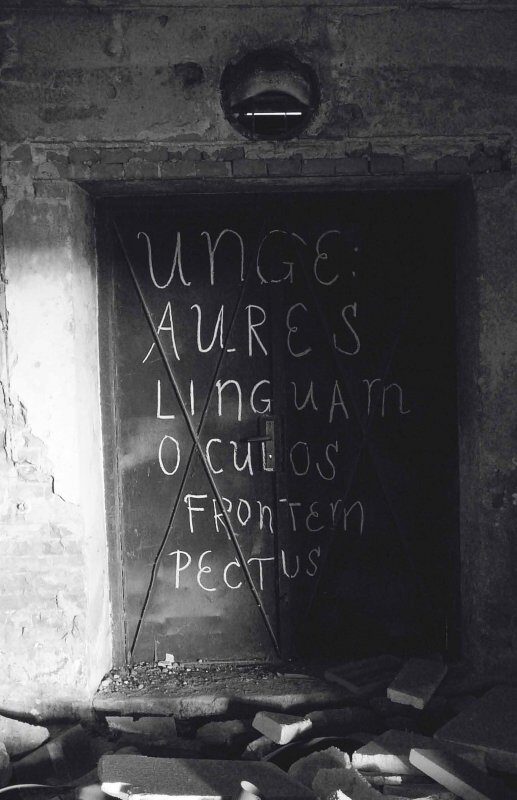 UNGE:
AURES
LINGUAM
OCULOS
FRONTEM
PECTUS